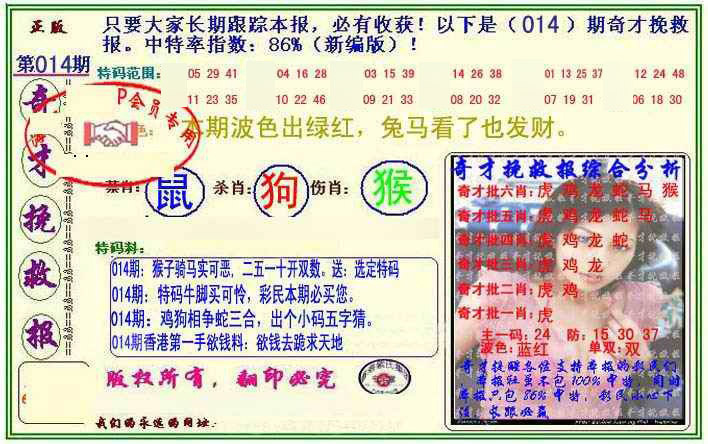 正版
只要大家长期跟踪本报，必有收获！以下是（014）期奇才挽救
报。中特率指数：86%（新编版）！
第014期
特码范围：
05 29 41 04 16 28 03 15 39 14 26 38 01 13 25 37 12 24 48
11 23 35 10 22 46 09 21 33 08 20 32 07 19 31 06 18 30
P会员专用
色：本期波色出绿红，兔马看了也发财。
奇
才
挽
救
报
禁肖：鼠 杀肖：狗 伤肖：猴
特码料：
014期：猴子骑马实可恶，二五一十开双数。送：选定特码
014期：特码牛脚买可怜，彩民本期必买您。
014期：鸡狗相争蛇三合，出个小码五字猜。
014期香港第一手欲钱料：欲钱去跪求天地
版权所有，翻印必究
我们的永远的网址：
奇才挽救报综合分析
奇才批六肖：虎 鸡 龙 蛇 马 猴
奇才批五肖：虎 鸡 龙 蛇 马
奇才批四肖：虎 鸡 龙 蛇
奇才批三肖：虎 鸡 龙
奇才批二肖：虎 鸡
奇才批一肖：虎
主一码：24 防：15 30 37
波色：蓝红 单双：双
奇才提醒各位支持本报的彩民们
本报社虽不包100%中特，同时
本报只包86%中特，彩民小心下
注，长跟必赢